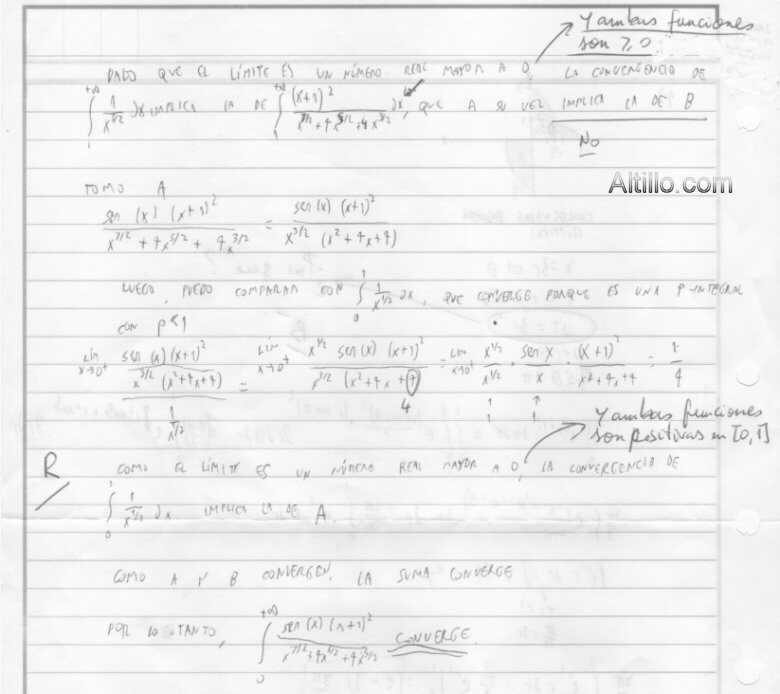 Y ambas funciones
son ≥ 0.
DADO QUE EL LÍMITE ES UN NÚMERO REAL MAYOR A 0, LA CONVERGENCIA DE
∫₁^{+∞} 1/x^{3/2} dx IMPLICA LA DE ∫₁^{+∞} (x+1)²/(x^{7/2}+4x^{5/2}+4x^{3/2}) dx, QUE A SU VEZ IMPLICA LA DE B
No
Altillo.com
TOMO A
sen(x) (x+1)²/(x^{7/2}+4x^{5/2}+4x^{3/2}) = sen(x) (x+1)²/(x^{3/2} (x²+4x+4))
LUEGO, PUEDO COMPARAR CON ∫₀¹ 1/x^{1/2} dx, QUE CONVERGE PORQUE ES UNA P-INTEGRAL
CON P<1
Lím x→0⁺ (sen(x)(x+1)²/(x^{3/2}(x²+4x+4)))/(1/x^{1/2}) = Lím x→0⁺ x^{1/2} sen(x) (x+1)²/(x^{3/2} (x²+4x+4)) = Lím x→0⁺ x^{1/2}/x^{1/2} · sen x/x · (x+1)²/(x²+4x+4) = 1/4
4
1 1
Y ambas funciones
son positivas en [0,1]
R
COMO EL LÍMITE ES UN NÚMERO REAL MAYOR A 0, LA CONVERGENCIA DE
∫₀¹ 1/x^{1/2} dx IMPLICA LA DE A.
COMO A Y B CONVERGEN, LA SUMA CONVERGE
POR LO TANTO, ∫₀^{+∞} sen(x)(x+1)²/(x^{7/2}+4x^{5/2}+4x^{3/2}) CONVERGE.